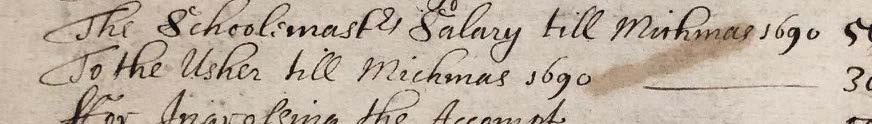 The Schoolemastrs Salary till Michmas 1690
To the Usher till Michmas 1690
ffor Ingrossing the Accompt